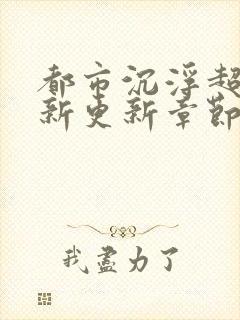 都市沉浮超
新更新章節
我盡力了